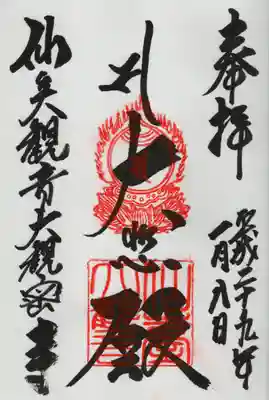 奉拝
平成二十九年
一月八日
大悲殿
仙臺觀音大観密寺